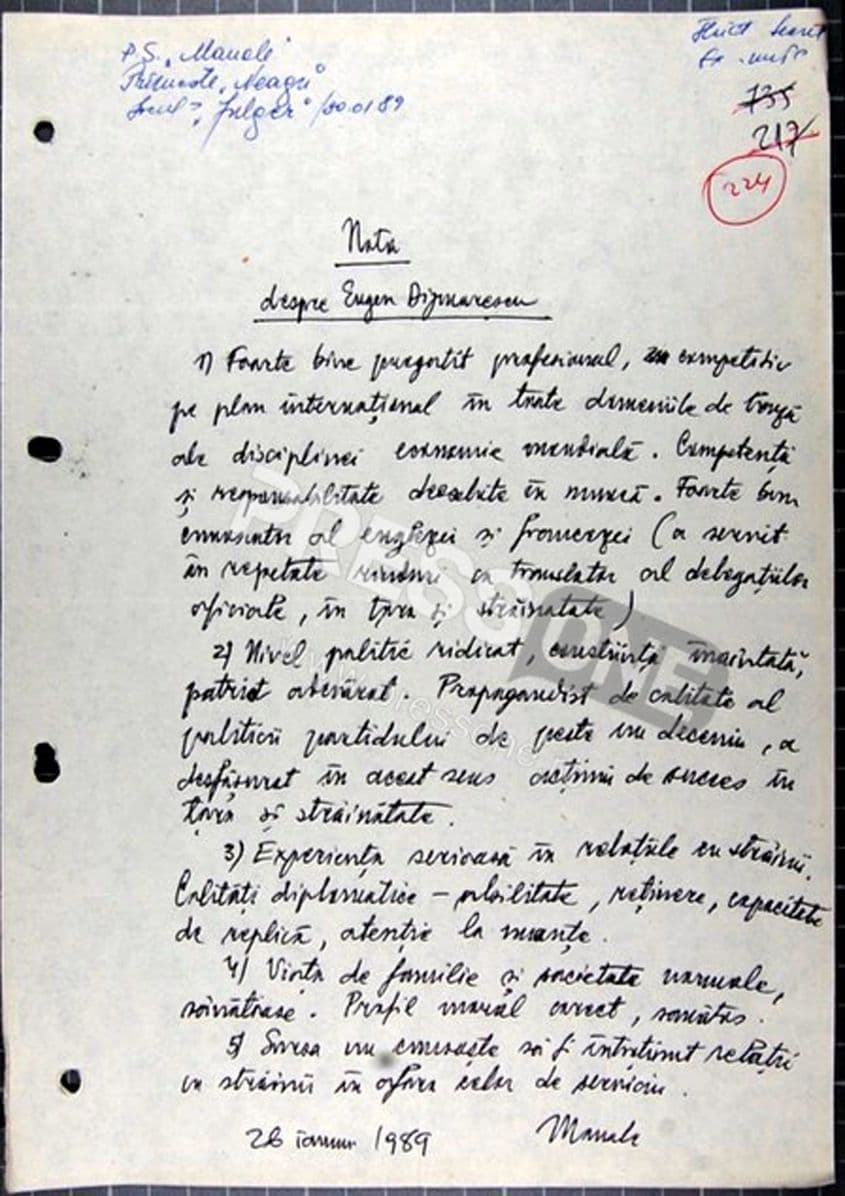 P.S. „Manole"
Primește „Neagu"
Locul „Fulger" /30.01.89
Strict Secret
Ex. unic
735
217
224
Nota
despre Eugen Dijmarescu
1) Foarte bine pregatit profesional, competitiv
pe plan internațional în toate domeniile de bază
ale disciplinei economie mondială. Competență
și responsabilitate deosebite în muncă. Foarte bun
cunoscator al englezei și francezei (a servit
în repetate rînduri ca translator al delegațiilor
oficiale, în țara și străinatate)
2) Nivel politic ridicat, conștiință înaintată,
patriot adevărat. Propagandist de calitate al
politicii partidului de peste un deceniu, a
desfășurat în acest sens acțiuni de succes în
țara și străinătate.
3) Experiența serioasă în relațiile cu străinii.
Calități diplomatice – abilitate, reținere, capacitate
de replică, atenție la nuanțe.
4) Viața de familie și societate normale,
sănătoase. Profil moral corect, sanătos.
5) Sursa nu cunoaște să fi întreținut relații
cu străinii în afara celor de serviciu.
28 ianuar 1989
Manole
PRESSONE